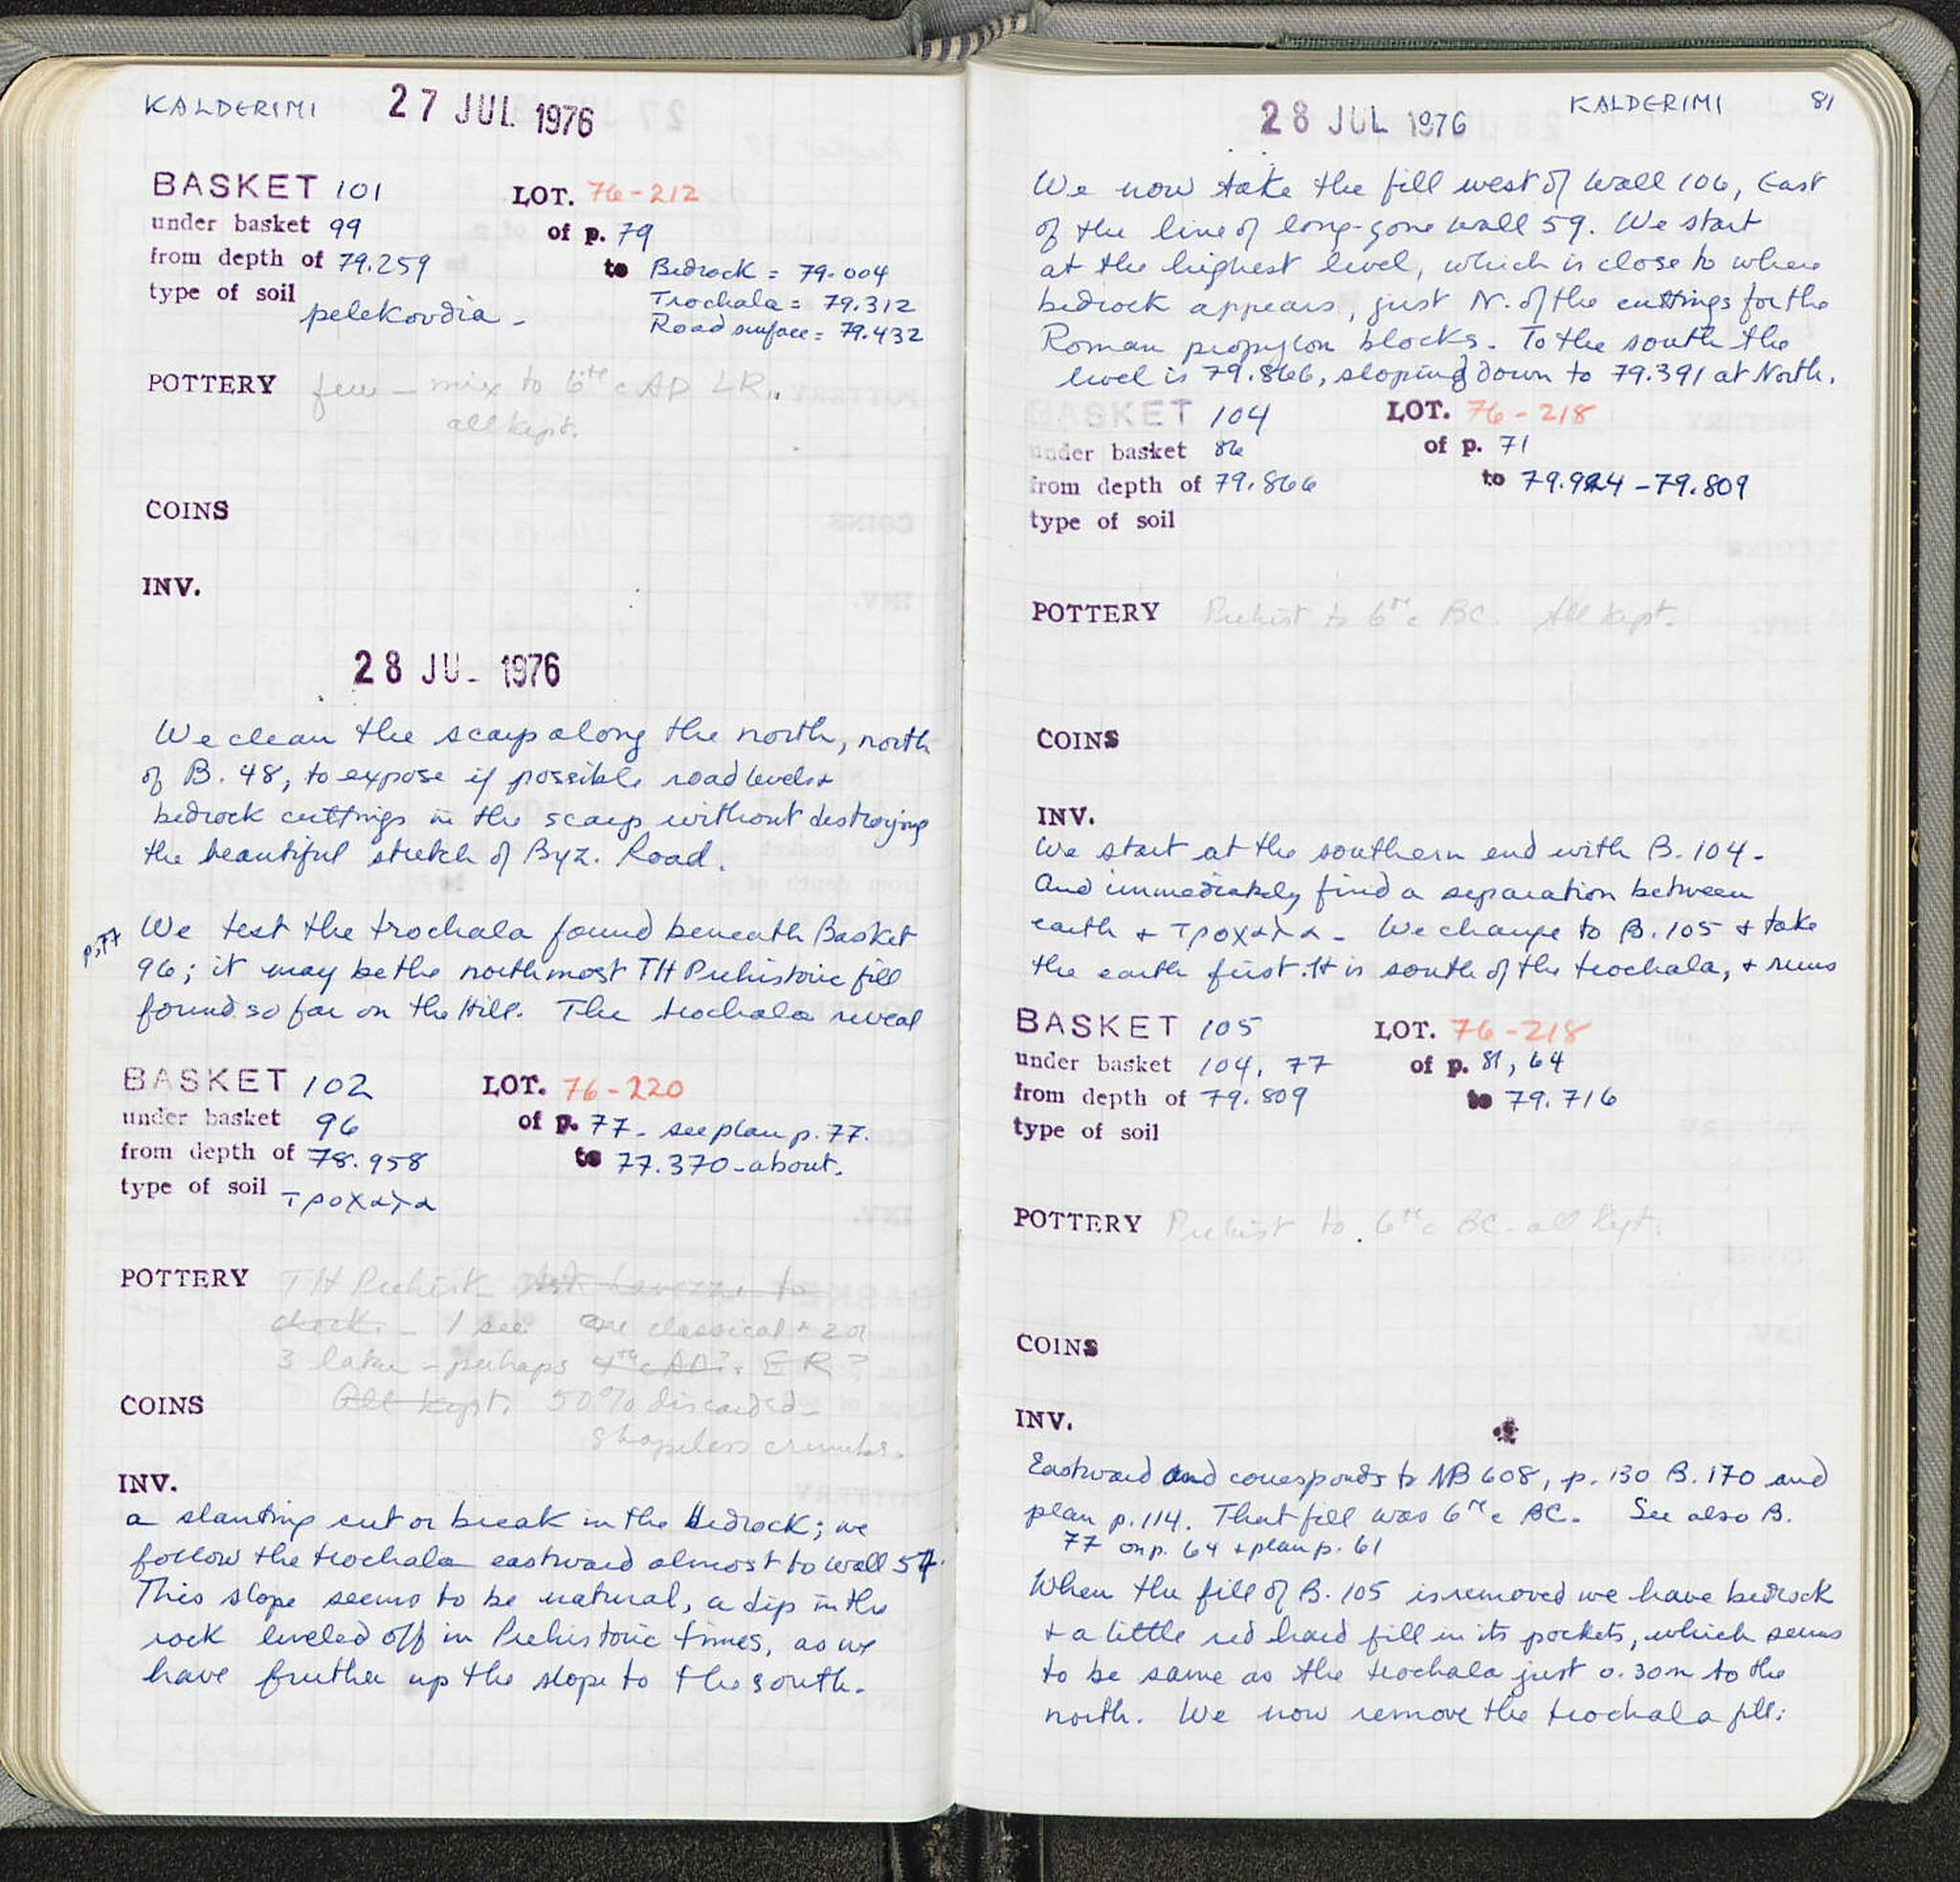 KALDERIMI 27 JUL 1976
BASKET 101 LOT. 76-212
under basket 99 of p. 79
from depth of 79.259 to Bedrock = 79.004
type of soil pelekoudia - Trochala = 79.312
Road surface = 79.432
POTTERY few - mix to 6th c AD LR.
all kept.
COINS
INV.
28 JUL 1976
We clean the scarp along the north, north
of B. 48, to expose if possible road levels +
bedrock cuttings in the scarp without destroying
the beautiful stretch of Byz. Road.
p.77 We test the trochala found beneath Basket
96; it may be the northmost TH Prehistoric fill
found so far on the Hill. The trochala reveal
BASKET 102 LOT. 76-220
under basket 96 of p. 77 - see plan p. 77.
from depth of 78.958 to 77.370 - about.
type of soil τροχαλα
POTTERY TH Prehist. Ask Lavezzi to
check. - 1 see one classical + 2 or
3 later - perhaps 4th c AD?. ER?
COINS All kept. 50% discarded -
shapeless crumbs.
INV.
a slanting cut or break in the bedrock; we
follow the trochala eastward almost to wall 57.
This slope seems to be natural, a dip in the
rock leveled off in Prehistoric times, as we
have further up the slope to the south.
28 JUL 1976 KALDERIMI 81
We now take the fill west of wall 106, East
of the line of long-gone wall 59. We start
at the highest level, which is close to where
bedrock appears, just N. of the cuttings for the
Roman propylon blocks. To the south the
level is 79.866, sloping down to 79.391 at North.
BASKET 104 LOT. 76-218
under basket 86 of p. 71
from depth of 79.866 to 79.924 - 79.809
type of soil
POTTERY Prehist to 6th c BC. All kept.
COINS
INV.
We start at the southern end with B. 104.
And immediately find a separation between
earth + τροχαλα - We change to B. 105 + take
the earth first. It is south of the trochala, + runs
BASKET 105 LOT. 76-218
under basket 104, 77 of p. 81, 64
from depth of 79.809 to 79.716
type of soil
POTTERY Prehist to 6th c BC - all kept.
COINS
INV.
Eastward and corresponds to NB 608, p. 130 B. 170 and
plan p. 114. That fill was 6th c BC. See also B.
77 on p. 64 + plan p. 61
When the fill of B. 105 is removed we have bedrock
+ a little red hard fill in its pockets, which seems
to be same as the trochala just 0.30m to the
north. We now remove the trochala fill: